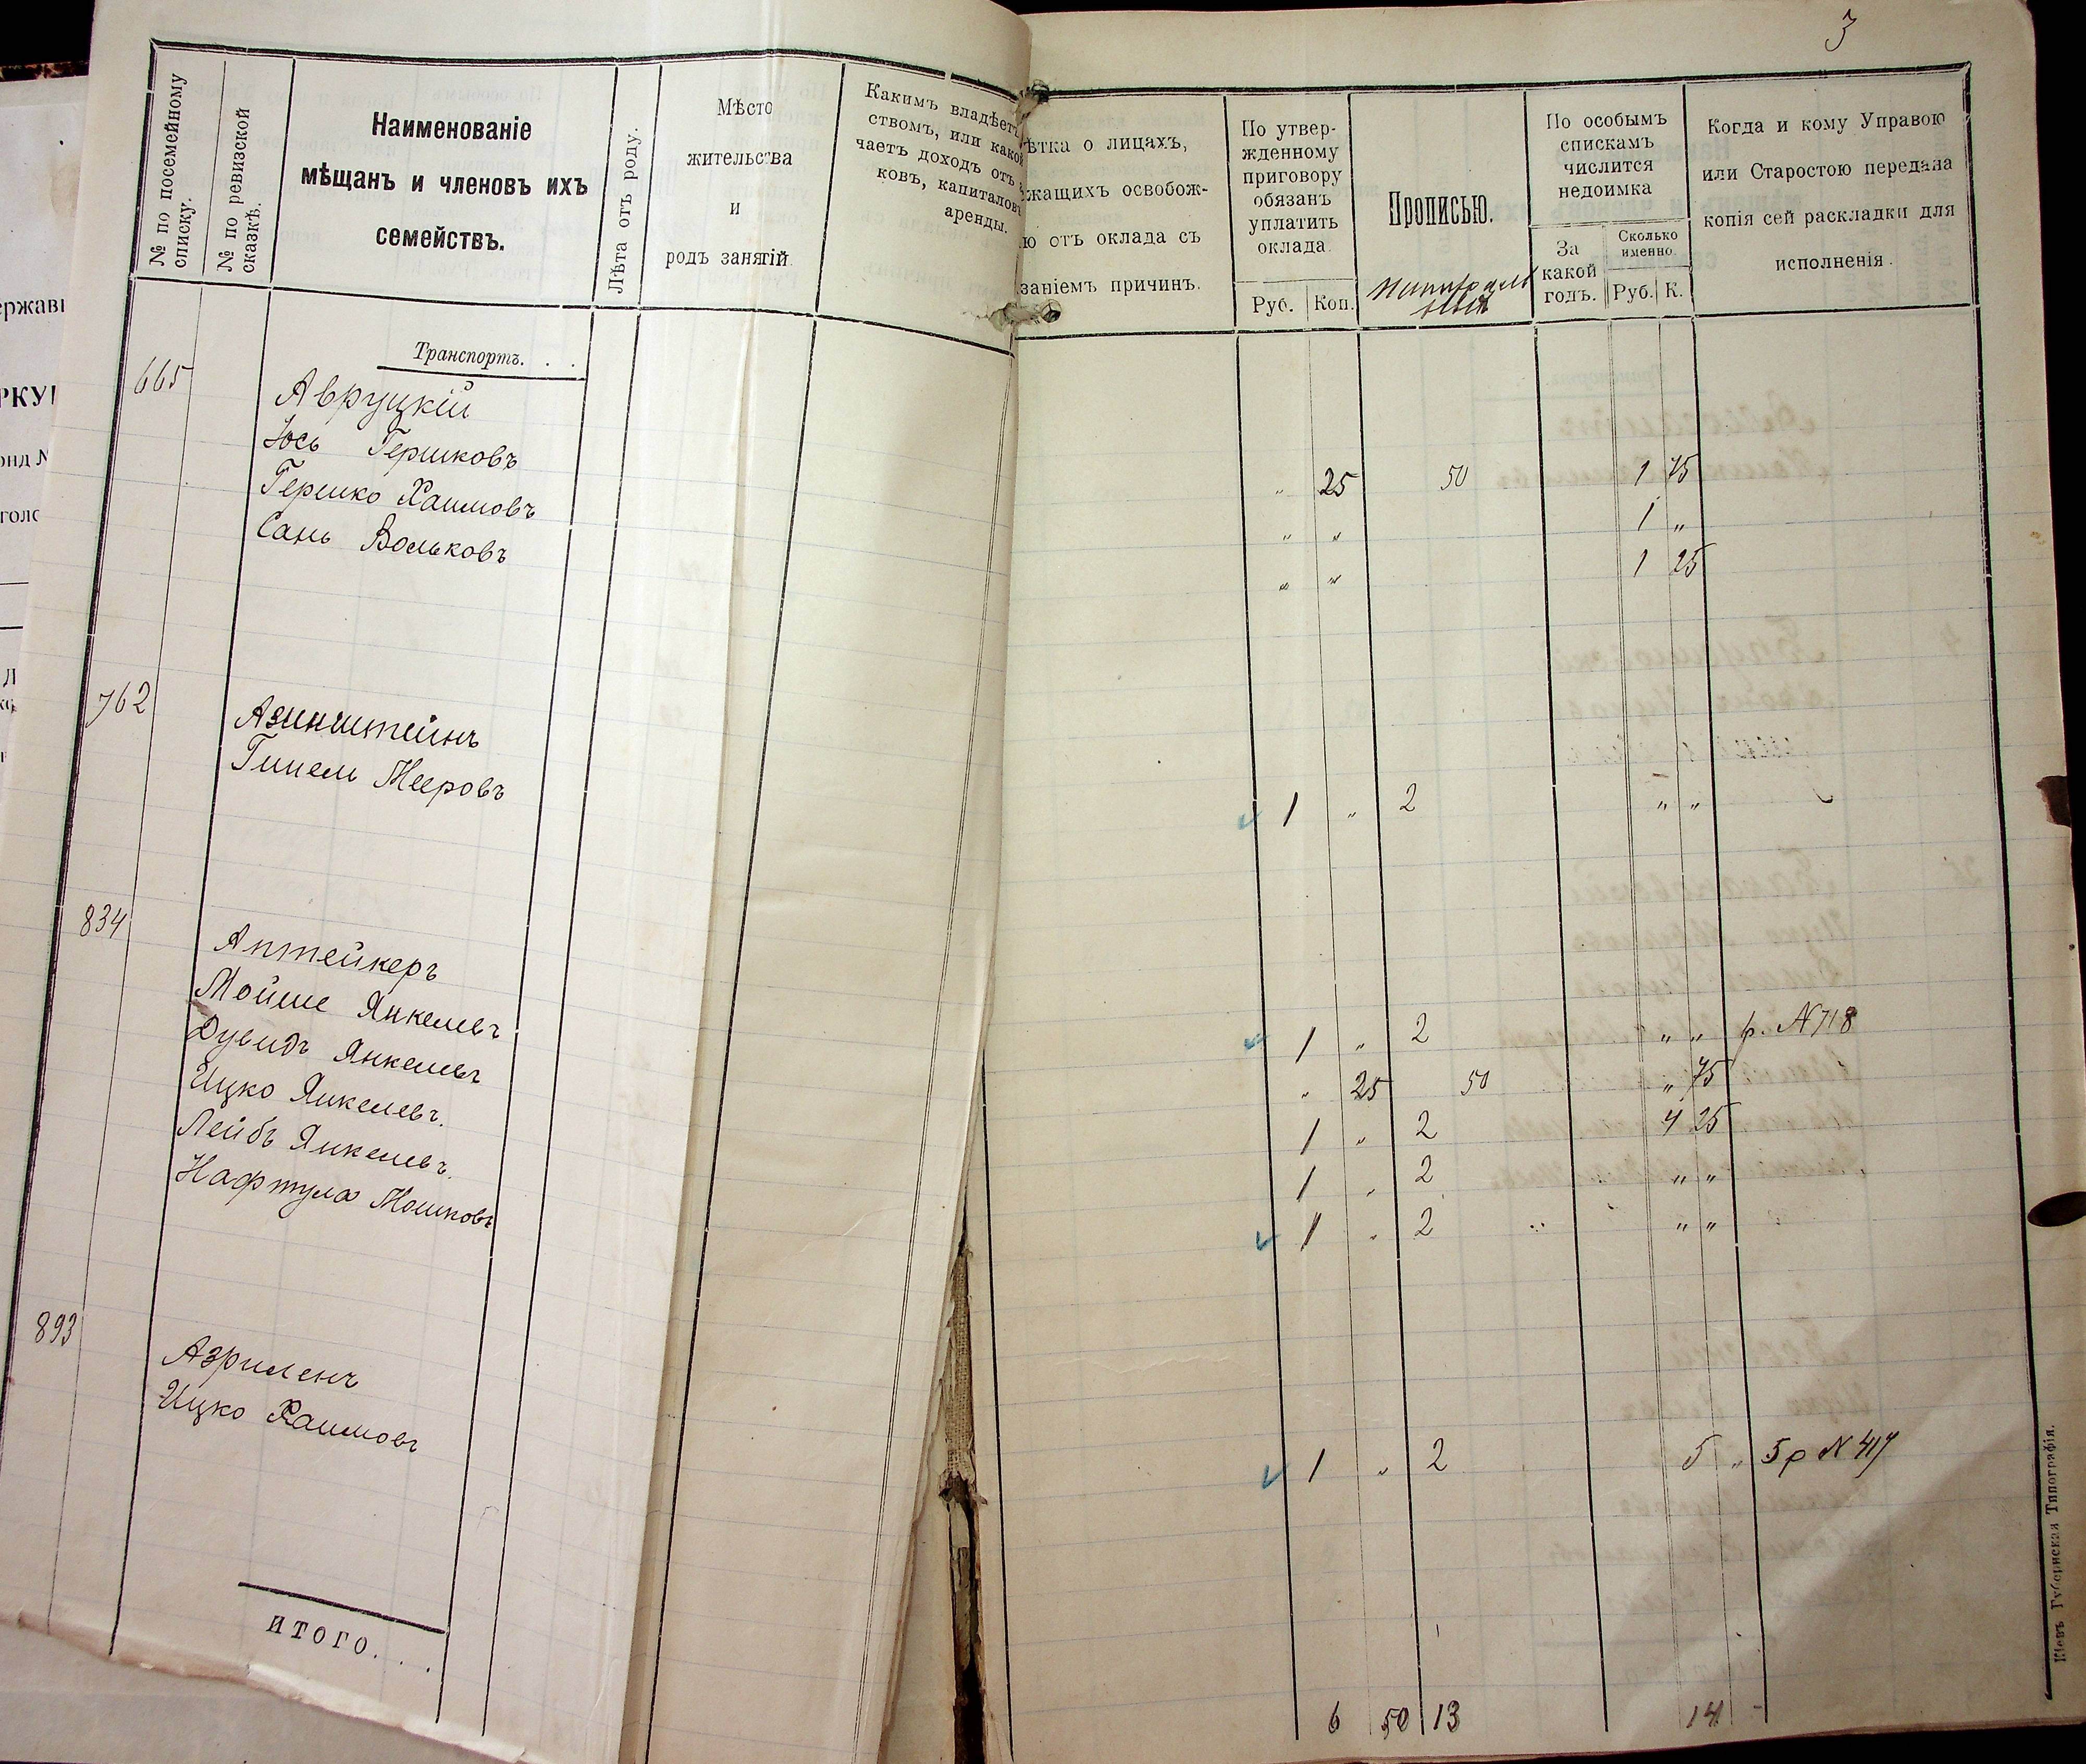 3
№ по посемейному списку.
№ по ревизской сказкѣ.
Наименованіе
мѣщанъ и членовъ ихъ
семействъ.
Лѣта отъ роду.
Мѣсто
жительства
и
родъ занятій.
Какимъ владѣетъ
ствомъ, или какой
чаетъ доходъ отъ
ковъ, капиталовъ
аренды.
ѣтка о лицахъ,
жащихъ освобож-
ю отъ оклада съ
заніемъ причинъ.
По утвер-
жденному
приговору
обязанъ
уплатить
оклада.
Руб. Коп.
Прописью.
По особымъ
спискамъ
числится
недоимка
За
какой
годъ.
Сколько
именно.
Руб. К.
Когда и кому Управою
или Старостою передана
копія сей раскладки для
исполненія.
Транспортъ. . .
665 Авруцкій
Іось Гершковъ „ 25 50 1 75
Гершко Хаимовъ „ „ 1 „
Сань Вольковъ „ „ 1 25
762 Азинштейнъ
Гипель Мееровъ 1 „ 2 „ „
834 Аптейкеръ
Мойше Янкелевъ 1 „ 2 „ „ р. N 718
Дувидъ Янкелевъ „ 25 50 „ 75
Ицко Янкелевъ. 1 „ 2 4 25
Лейбъ Янкелевъ. 1 „ 2 „ „
Нафтула Мошковъ 1 „ 2 „ „
893 Азриленъ
Ицко Хаимовъ 1 „ 2 5 „ 5 р N 417
ИТОГО. . .
6 50 13 14 -
Кіевъ Губернская Типографія.
ержавн
РКУ
онд №
голо